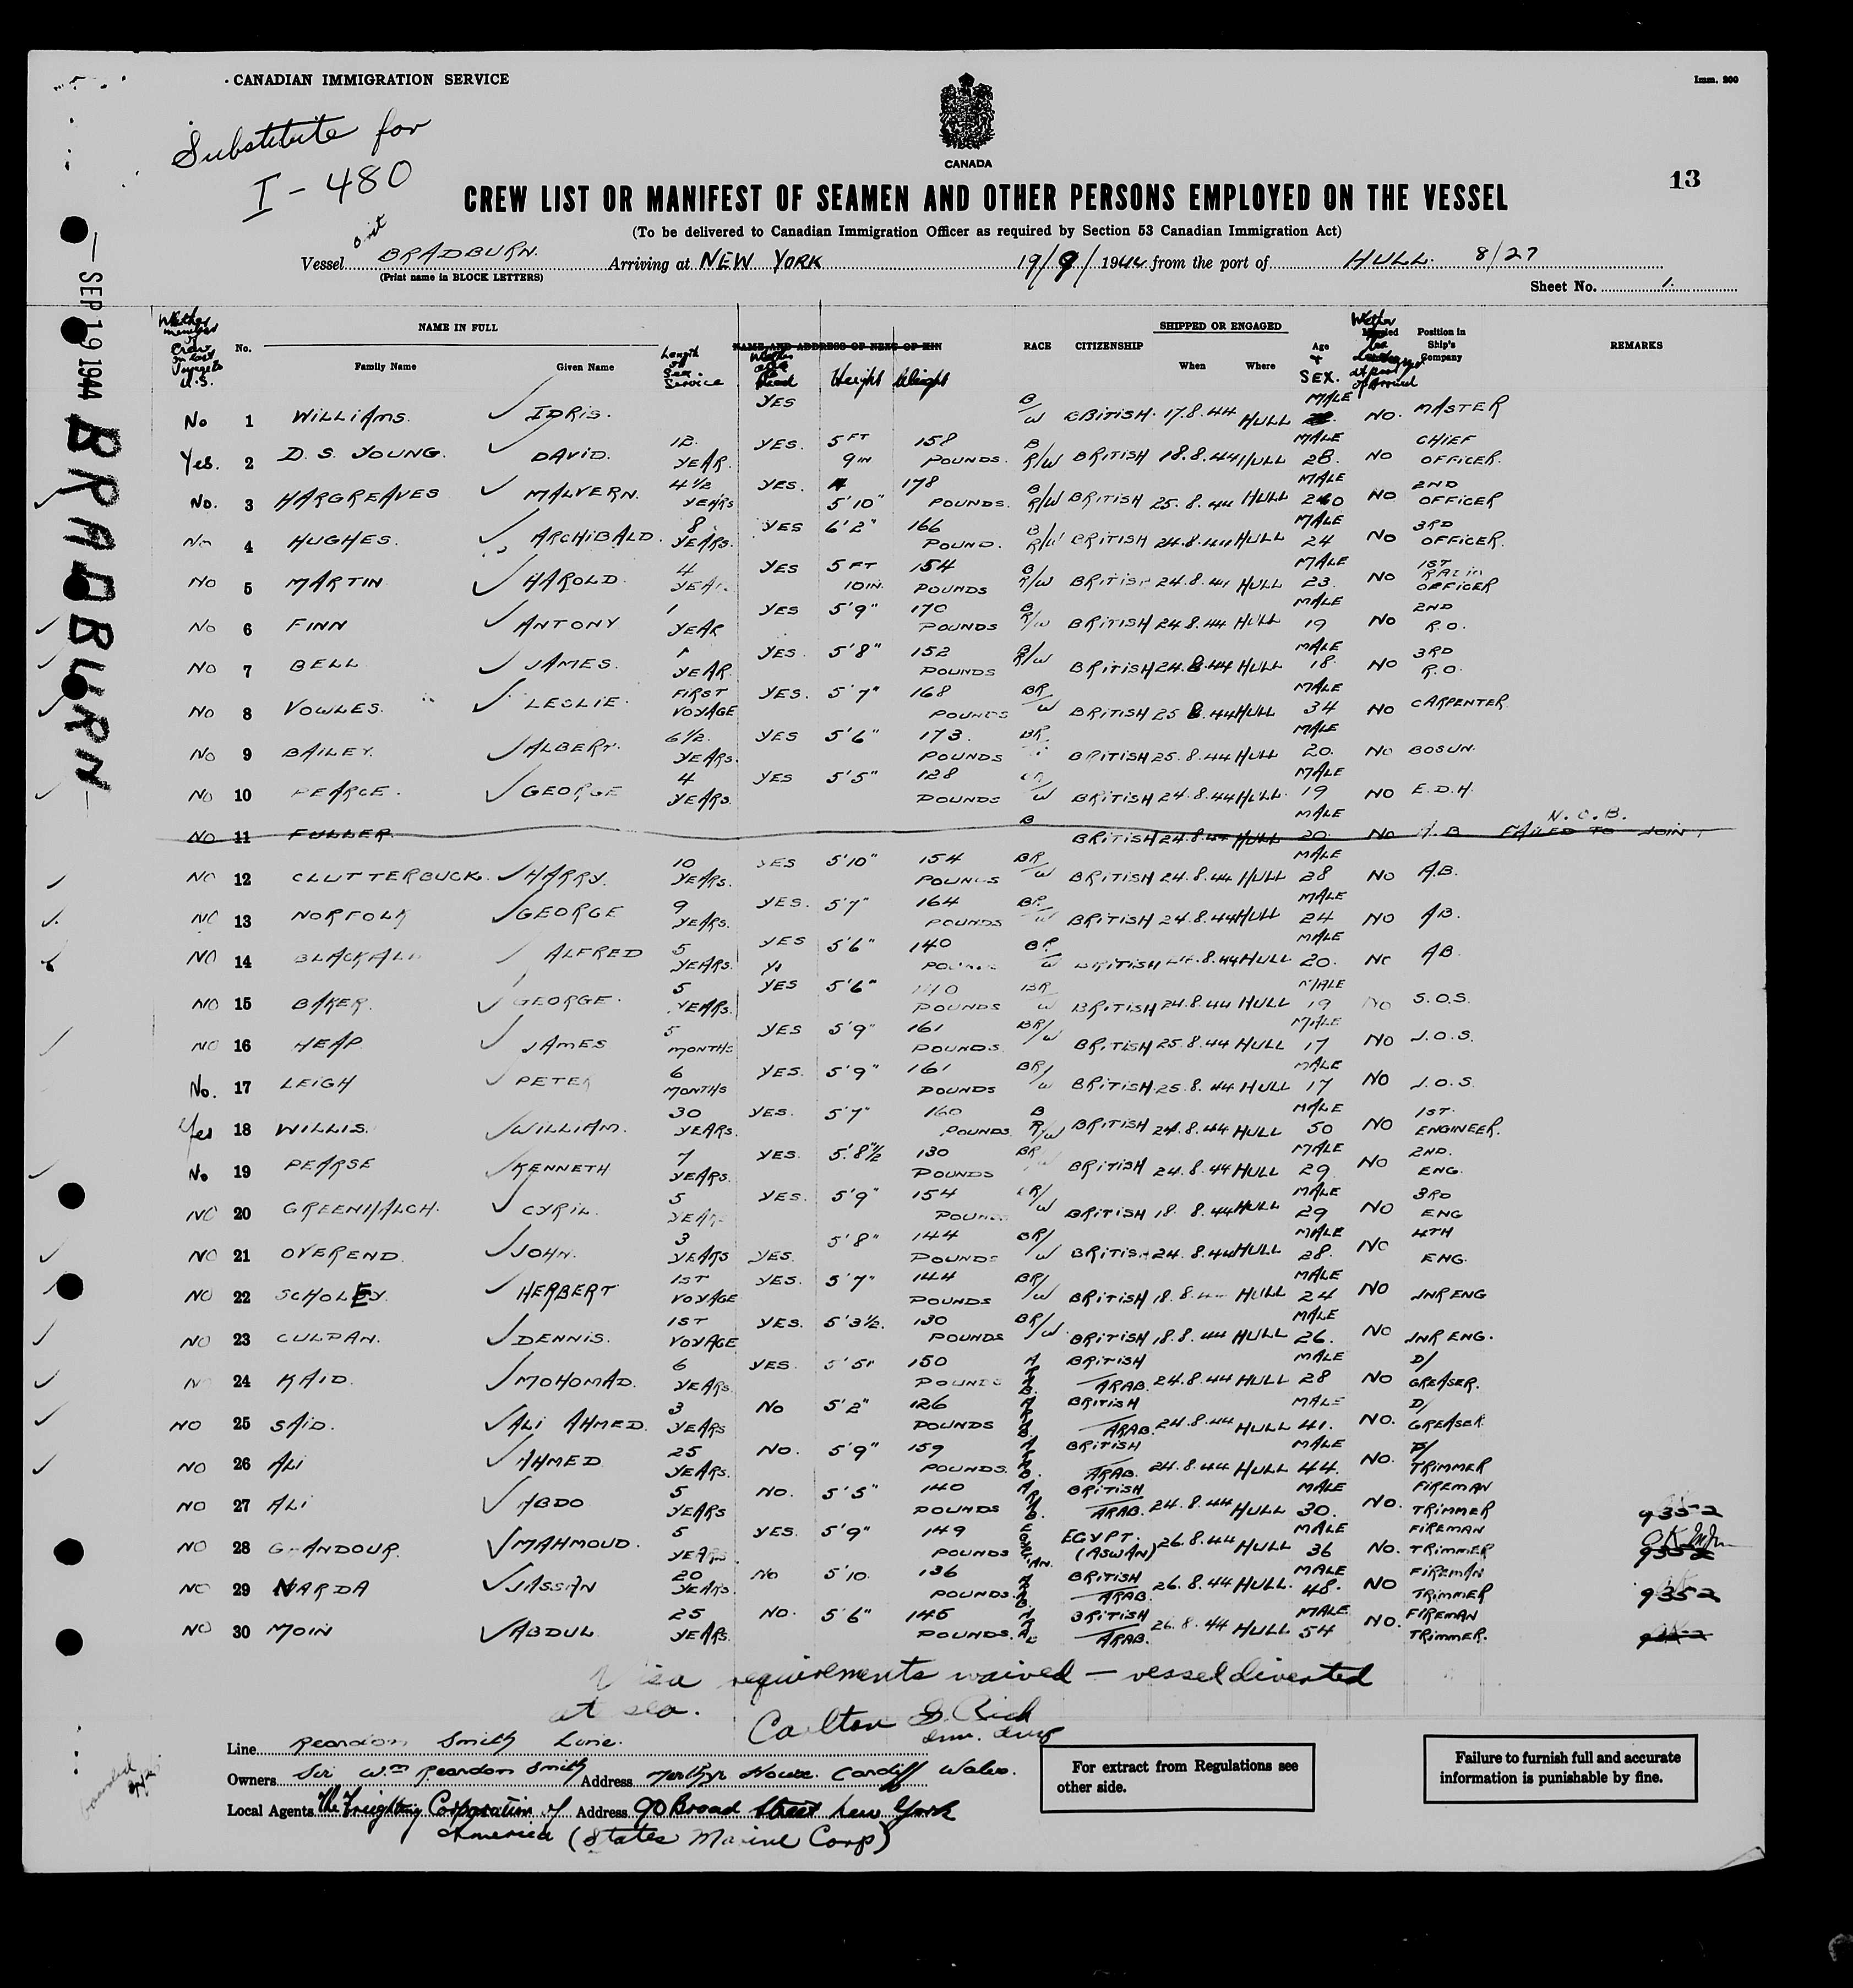 CANADIAN IMMIGRATION SERVICE
Imm. 200
Substitute for
I - 480
CANADA
13
CREW LIST OR MANIFEST OF SEAMEN AND OTHER PERSONS EMPLOYED ON THE VESSEL
(To be delivered to Canadian Immigration Officer as required by Section 53 Canadian Immigration Act)
Vessel Brit BRADBURN. Arriving at NEW YORK 19/9/1944 from the port of HULL. 8/27
(Print name in BLOCK LETTERS)
Sheet No. 1.
SEP 19 1944 BRADBURN
Whether member of Crew on last Voyage to U.S. No. NAME IN FULL Family Name Given Name Length of Sea Service NAME AND ADDRESS OF NEXT OF KIN Whether able to Read Height Weight RACE CITIZENSHIP SHIPPED OR ENGAGED When Where Age + SEX. Position in Ship's Company REMARKS
No 1 WILLIAMS. IDRIS. YES B/W BRITISH. 17.8.44 HULL MALE NO. MASTER
Yes. 2 D. S. YOUNG. DAVID. 12 YEAR. YES. 5 FT 9 IN 158 POUNDS. BR/W BRITISH 18.8.44 HULL MALE 28. NO CHIEF OFFICER.
No. 3 HARGREAVES MALVERN. 4 1/2 YEARS YES. 5'10" 178 POUNDS. BR/W BRITISH 25.8.44 HULL MALE NO 2ND OFFICER
No 4 HUGHES. ARCHIBALD. 8 YEARS. YES 6'2" 166 POUND. BR/W BRITISH 24.8.44 HULL MALE 24 NO 3RD OFFICER.
NO 5 MARTIN HAROLD. 4 YEAR. YES 5 FT 10 IN. 154 POUNDS BR/W BRITISH 24.8.44 HULL MALE 23. NO 1ST RADIO OFFICER
No 6 FINN ANTONY 1 YEAR YES 5'9" 170 POUNDS BR/W BRITISH 24.8.44 HULL MALE 19 NO 2ND R.O.
NO 7 BELL JAMES. 1 YEAR. YES. 5'8" 152 POUNDS BR/W BRITISH 24.8.44 HULL MALE 18. NO 3RD R.O.
NO 8 VOWLES. LESLIE. FIRST VOYAGE YES. 5'7" 168 POUNDS BR/W BRITISH 25 8.44 HULL MALE 34 NO CARPENTER
NO 9 BAILEY. ALBERT. 6 1/2. YEARS. YES 5'6" 173. POUNDS BR. BRITISH 25.8.44 HULL MALE 20. NO BOSUN.
NO 10 PEARCE. GEORGE 4 YEARS. YES 5'5" 128 POUNDS BR/W BRITISH 24.8.44 HULL. MALE 19 NO E.D.H.
NO 11 FULLER. B BRITISH 24.8.44 HULL MALE 20 NO A.B N.C.B. FAILED TO JOIN
NO 12 CLUTTERBUCK. HARRY. 10 YEARS. YES 5'10" 154 POUNDS BR/W BRITISH 24.8.44 HULL MALE 28 NO A.B.
NO 13 NORFOLK GEORGE 9 YEARS. YES. 5'7" 164 POUNDS BR/W BRITISH 24.8.44 HULL MALE 24 NO AB.
NO 14 BLACKALL ALFRED 5 YEARS. YES 5'6" 140 POUNDS BR/W BRITISH 24.8.44 HULL MALE 20. NO AB.
NO 15 BAKER. GEORGE. 5 YEARS. YES 5'6" POUNDS BR/W BRITISH 24.8.44 HULL MALE 19 NO S.O.S.
NO 16 HEAP JAMES 5 MONTHS YES 5'9" 161 POUNDS. BR/W BRITISH 25.8.44 HULL MALE 17 NO J.O.S.
No. 17 LEIGH PETER 6 MONTHS YES. 5'9" 161 POUNDS BR/W BRITISH 25.8.44 HULL MALE 17 NO J.O.S.
Yes 18 WILLIS. WILLIAM. 30 YEARS. YES. 5'7" 160 POUNDS BR/W BRITISH 24.8.44 HULL MALE 50 NO 1ST. ENGINEER.
No 19 PEARSE KENNETH 7 YEARS. YES. 5'8"1/2 130 POUNDS BR/W BRITISH 24.8.44 HULL MALE 29. NO 2ND. ENG.
NO 20 GREENHALGH. CYRIL. 5 YEAR YES. 5'9" 154 POUNDS BR/W BRITISH 18.8.44 HULL MALE 29 NO 3RD ENG
NO 21 OVEREND. JOHN. 3 YEARS YES. 5'8" 144 POUNDS BR/W BRITISH 24.8.44 HULL MALE 28. NO 4TH ENG.
NO 22 SCHOLEY. HERBERT 1ST VOYAGE YES. 5'7" 144 POUNDS BR/W BRITISH 18.8.44 HULL MALE 24 NO JNR ENG
NO 23 CULPAN. DENNIS. 1ST VOYAGE YES. 5'3 1/2. 130 POUNDS BR/W BRITISH 18.8.44 HULL MALE 26. NO JNR ENG.
NO 24 KAID. MOHOMAD. 6 YEARS. YES. 5'5" 150 POUNDS ARAB. BRITISH ARAB. 24.8.44 HULL MALE 28 NO D/ GREASER.
NO 25 SAID. ALI AHMED. 3 YEARS No 5'2" 126 POUNDS ARAB BRITISH ARAB. 24.8.44 HULL MALE 41. NO. D/ GREASER
NO 26 ALI AHMED 25 YEARS. No. 5'9" 159 POUNDS. ARAB. BRITISH ARAB. 24.8.44 HULL MALE 44. NO. TRIMMER
NO 27 ALI ABDO 5 YEARS NO. 5'5" 140 POUNDS ARAB. BRITISH ARAB. 24.8.44 HULL MALE 30. NO. FIREMAN TRIMMER 9352
NO 28 GHANDOUR. MAHMOUD. 5 YEARS YES. 5'9" 149 POUNDS EGYPTIAN. EGYPT. (ASWAN) 26.8.44 HULL MALE 36 NO. FIREMAN TRIMMER OK 9352
NO 29 NARDA JASSIN 20 YEARS. NO 5'10. 136 POUNDS. ARAB BRITISH ARAB. 26.8.44 HULL. MALE 48. NO FIREMAN TRIMMER 9352
NO 30 MOIN ABDUL 25 YEARS. NO. 5'6" 145 POUNDS. ARAB BRITISH ARAB. 26.8.44 HULL MALE 54 NO. FIREMAN TRIMMER. 9352
Visa requirements waived — vessel diverted
at sea. Carlton G. Rich
Imm. Insp
Line Reardon Smith Line.
Owners Sir Wm Reardon Smith Address Merthyr House. Cardiff Wales.
Local Agents The Freighting Corporation of Address 90 Broad Street New York
America (States Marine Corp)
For extract from Regulations see
other side.
Failure to furnish full and accurate
information is punishable by fine.